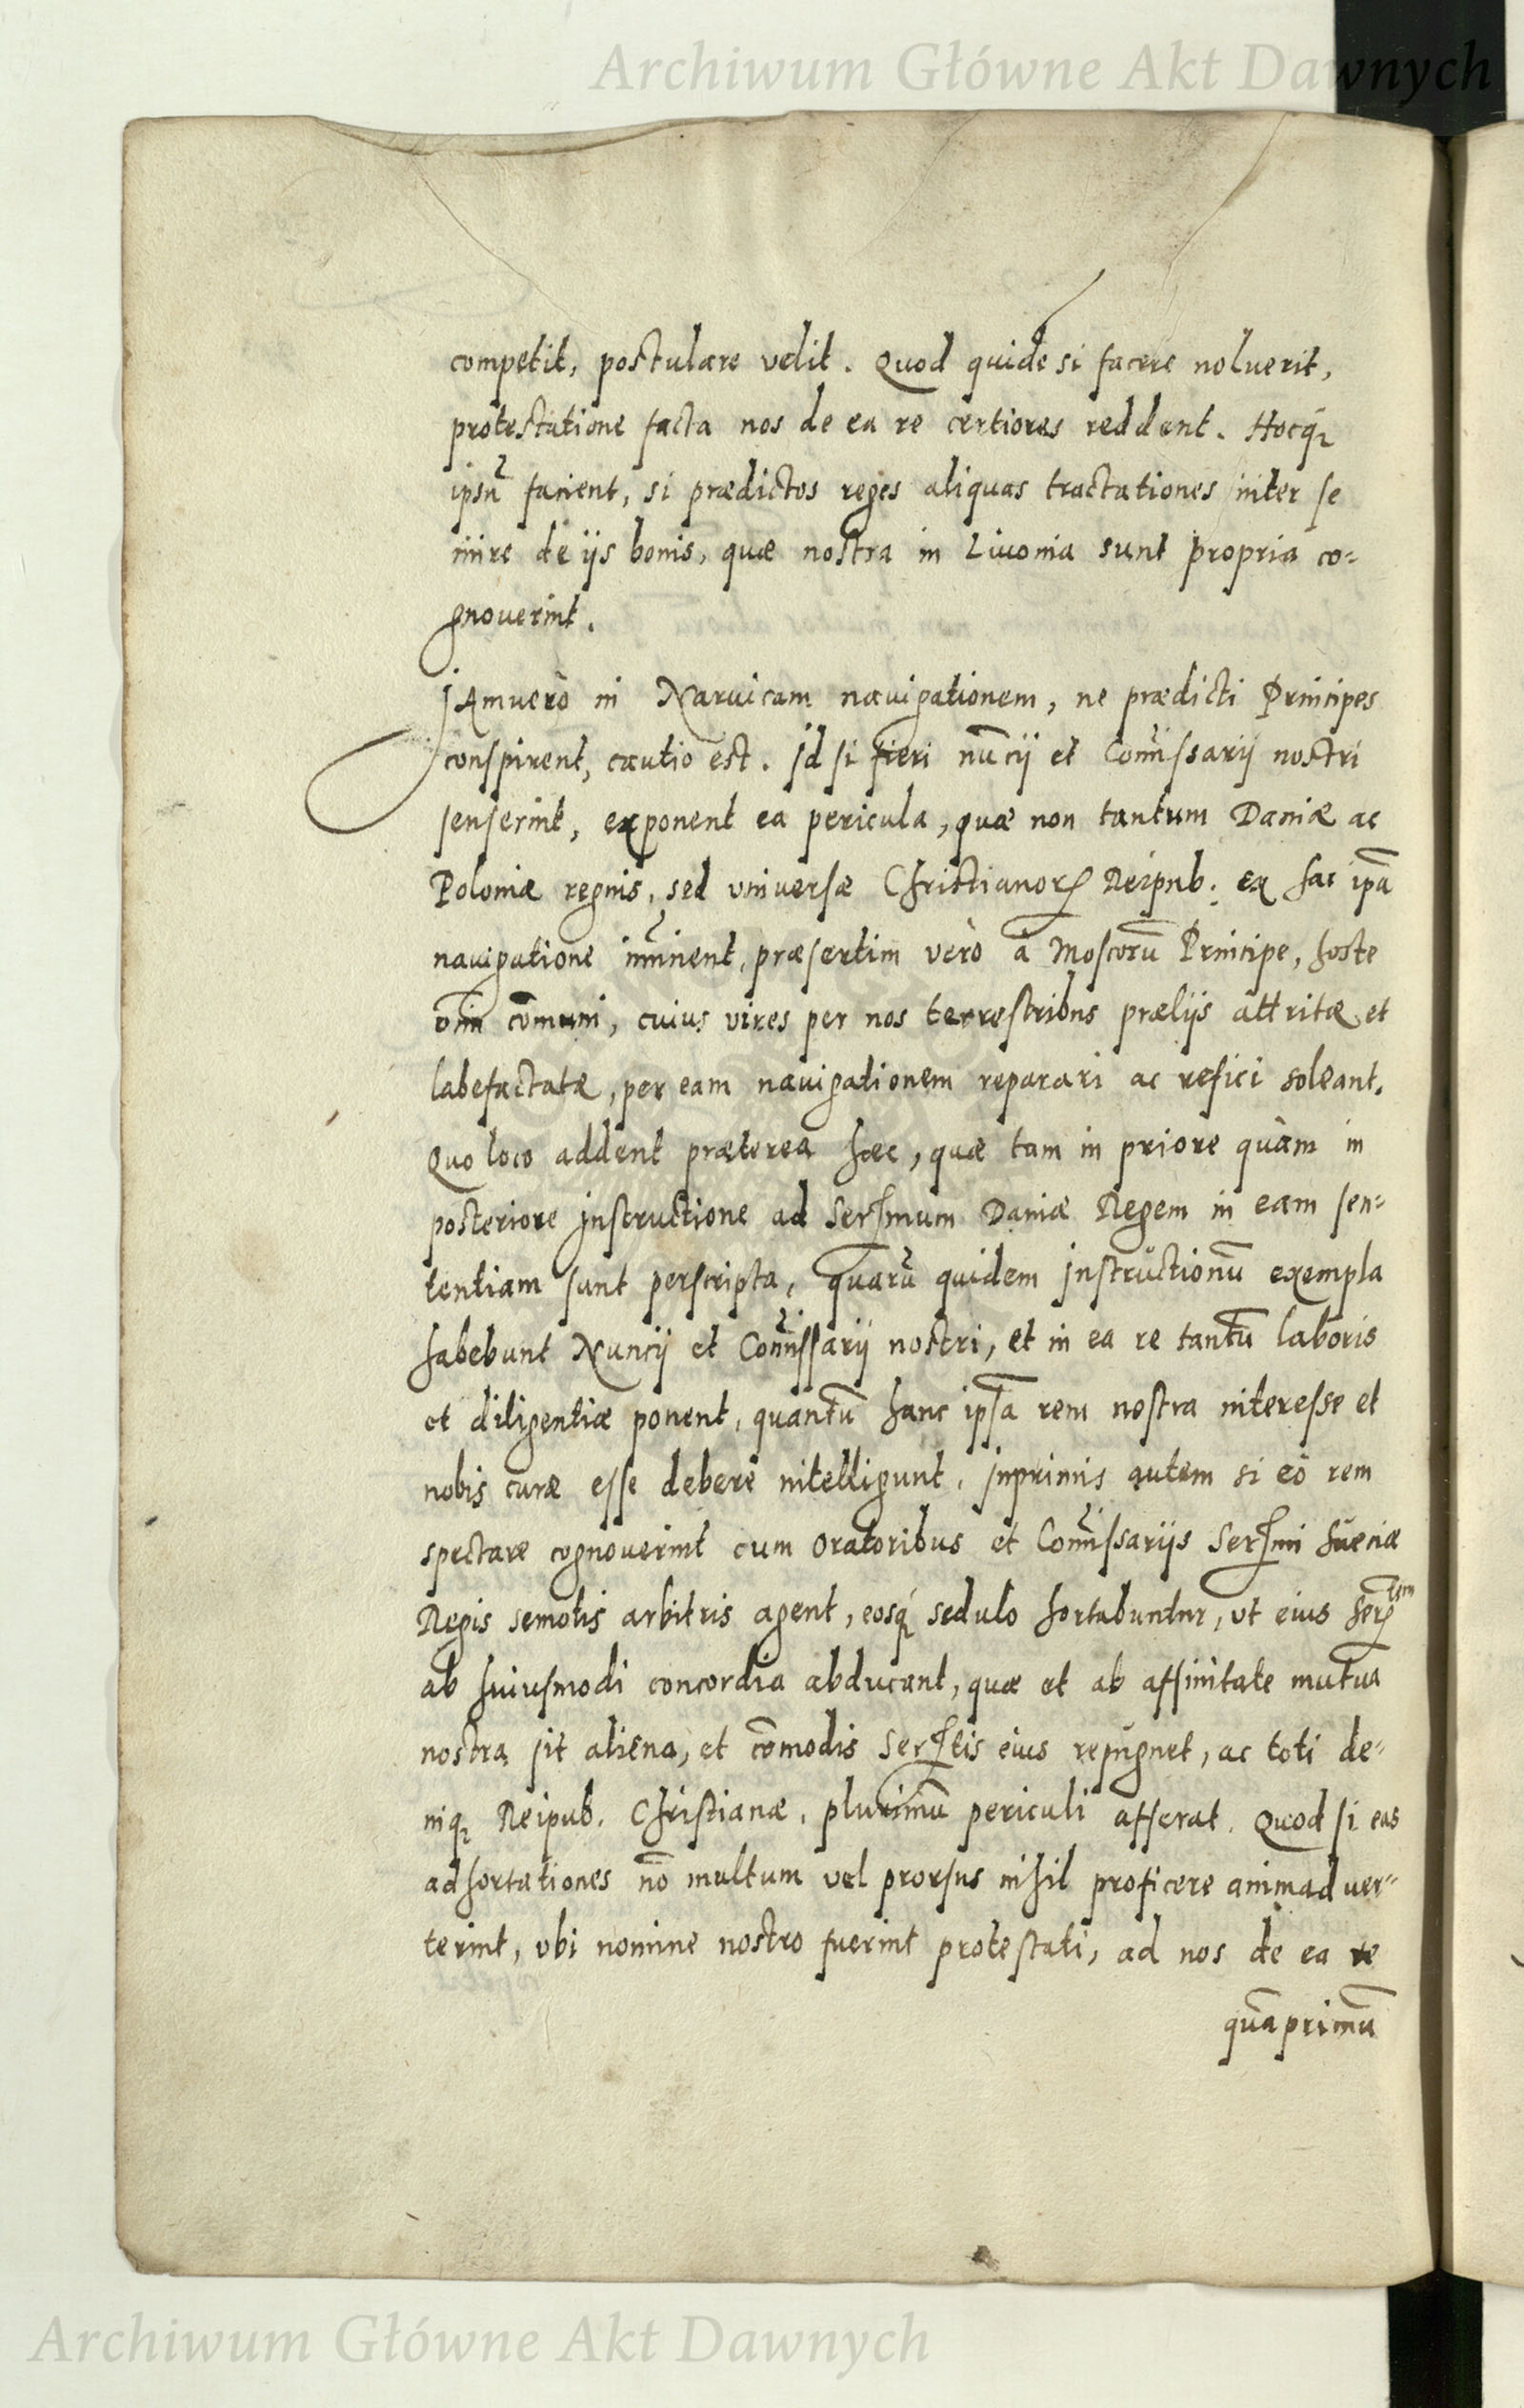 Archiwum Główne Akt Dawnych
competit, postulare velit. Quod quidē si facere noluerit,
protestatione facta nos de ea re certiores reddent. Hocq́ꝫ
ipsũ facient, si prædictos reges aliquas tractationes inter se
inire de ijs bonis, quæ nostra in Liuonia sunt propria co-
gnouerint.
JAmuerò in Naruicam nauigationem, ne prædicti Principes
conspirent, cautio est. Jd si fieri nūcij et Com̃issarij nostri
senserint, exponent ea pericula, quæ non tantum Daniæ ac
Poloniæ regnis, sed vniuersæ Christianorꝝ Reipub. ex hac ipā
nauigatione im̃inent, præsertim verò à Moscorū Principe, hoste
om̄i cōmuni, cuius vires per nos terrestribus prælijs attritæ et
labefactatæ, per eam nauigationem reparari ac refici soleant.
Quo loco addent præterea hæc, quæ tam in priore quàm in
posteriore jnstructione ad Serſmum Daniæ Regem in eam sen-
tentiam sunt perscripta, quarū quidem jnstructionū exempla
habebunt Nuncij et Com̃issarij nostri, et in ea re tantū laboris
et diligentiæ ponent, quantū hanc ipsā rem nostra interesse et
nobis curæ esse debere intelligunt. jnprimis autem si eò rem
spectare cognouerint cum Oratoribus et Com̃issarijs Serſmi Sueciæ
Regis semotis arbitris agent, eosq́ꝫ sedulo hortabuntur, vt eius Serᵗᵉᵐ
ab huiusmodi concordia abducant, quæ et ab affinitate mutua
nostra sit aliena, et cōmodis Serſtis eius repugnet, ac toti de-
niqꝫ Reipub. Christianæ, plurimū periculi afferat. Quod si eas
adhortationes nō multum vel prorsus nihil proficere animaduer-
terint, vbi nomine nostro fuerint protestati, ad nos de ea re
quāprimū
Archiwum Główne Akt Dawnych